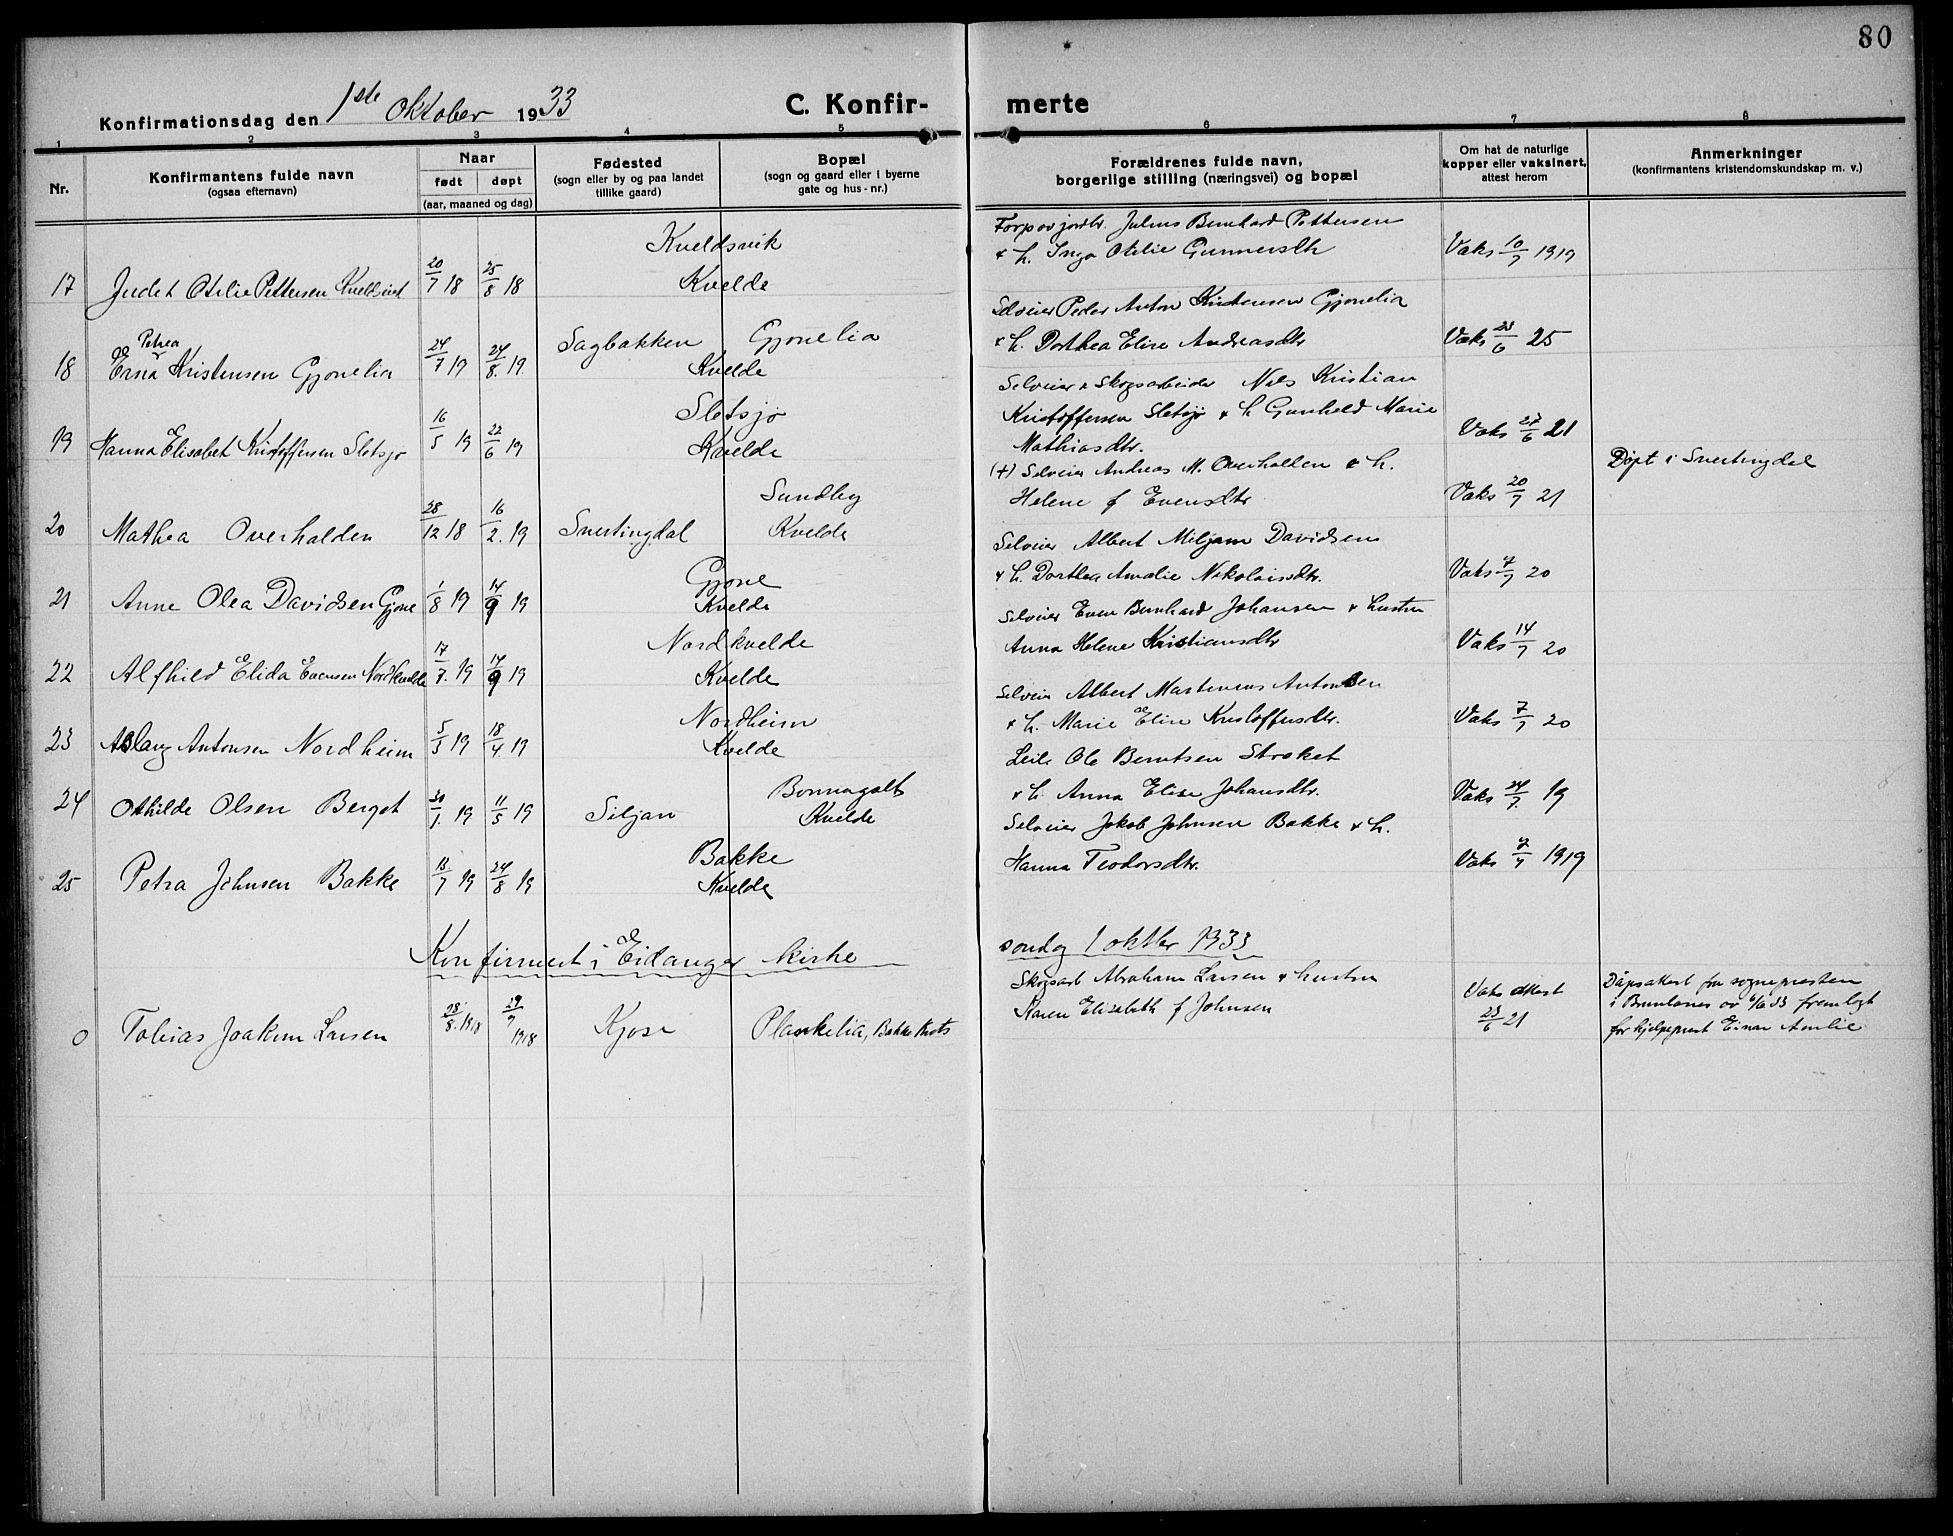 80
Konfirmationsdag den 1ste Oktober 1933
C. Konfir- merte
1 2 3 4 5 6 7 8
Nr.
Konfirmantens fulde navn
(ogsaa efternavn)
Naar
født døpt
(aar, maaned og dag)
Fødested
(sogn eller by og paa landet
tillike gaard)
Bopæl
(sogn og gaard eller i byerne
gate og hus-nr.)
Forældrenes fulde navn,
borgerlige stilling (næringsvei) og bopæl
Om hat de naturlige
kopper eller vaksinert,
attest herom
Anmerkninger
(konfirmantens kristendomskundskap m. v.)
Kveldsvik Julius Bernhard Pettersen
& h. Inga Otilie Gunnersdtr Vaks 10/7 1919
17 Judet Otilie Pettersen 20/7 18 25/8 18 Kvelde
Selveier Peder Anton Kristensen Gjonelia
Petrea Sagbakken Gjonelia & h. Dorthea Elise Andreasdtr Vaks 23/6 25
18 Erna Kristensen Gjonelia 24/7 19 24/8. 19. Kvelde
Selveier & Skogsarbeider Nils Kristian
Sletsjø Kristoffersen Sletsjø & h Gunhild Marie
19 Hanna Elisabet Kristoffersen Sletsjø 16/5 19 22/6 19 Kvelde Mathiasdtr. Vaks 27/6 21
(+) Selveier Andreas M. Overhallen & h. Døpt i Snertingdal
Sundby Helene f Evensdtr Vaks 20/7 21
20 Mathea Overhalden 28/12 18 16/2. 19 Snertingdal Kvelde
Selveier Albert Miljam Davidsen
Gjone & h. Dorthea Amalie Nikolaisdtr. Vaks 7/7 20
21 Anne Olea Davidsen Gjone 1/8 19 14/9 19 Kvelde
Selveier Even Bernhard Johansen & hustru
Nordkvelde Anna Helene Kristiansdtr Vaks 14/7 20
22 Alfhild Elida Evensen Nordkvelde 17/7. 19 14/9 19 Kvelde
Selveier Albert Martinius Antonsen
Nordheim & h. Marie Elise Kristoffersdtr. Vaks 7/7 20
23 Aslaug Antonsen Nordheim 5/3 19 18/4. 19 Kvelde
Leil. Ole Berntsen Stroket
Bonnagolt & h. Anna Elise Johansdtr. Vaks 24/7. 19
24 Othilde Olsen Berget 30/1. 19 11/5 19 Siljan Kvelde
Selveier Jakob Johnsen Bakke & h.
Bakke Hanna Teodorsdtr. Vaks 2/7 1919
25 Petra Johnsen Bakke 13/7 19 24/8 19 Kvelde
Konfirmert i Eidanger kirke søndag 1 oktbr 1933
Skogsarb Abraham Larsen & hustru
Karen Elisabeth f Johnsen Vaks attest 23/6 21
0 Tobias Joakim Larsen 28/8. 1918 29/9 1918 Kjose Plankelia, Bakke
Dåpsattest fra sognepresten
i Brunlanes av 6/6 33 fremlagt
for hjelpeprest Einar Amlie